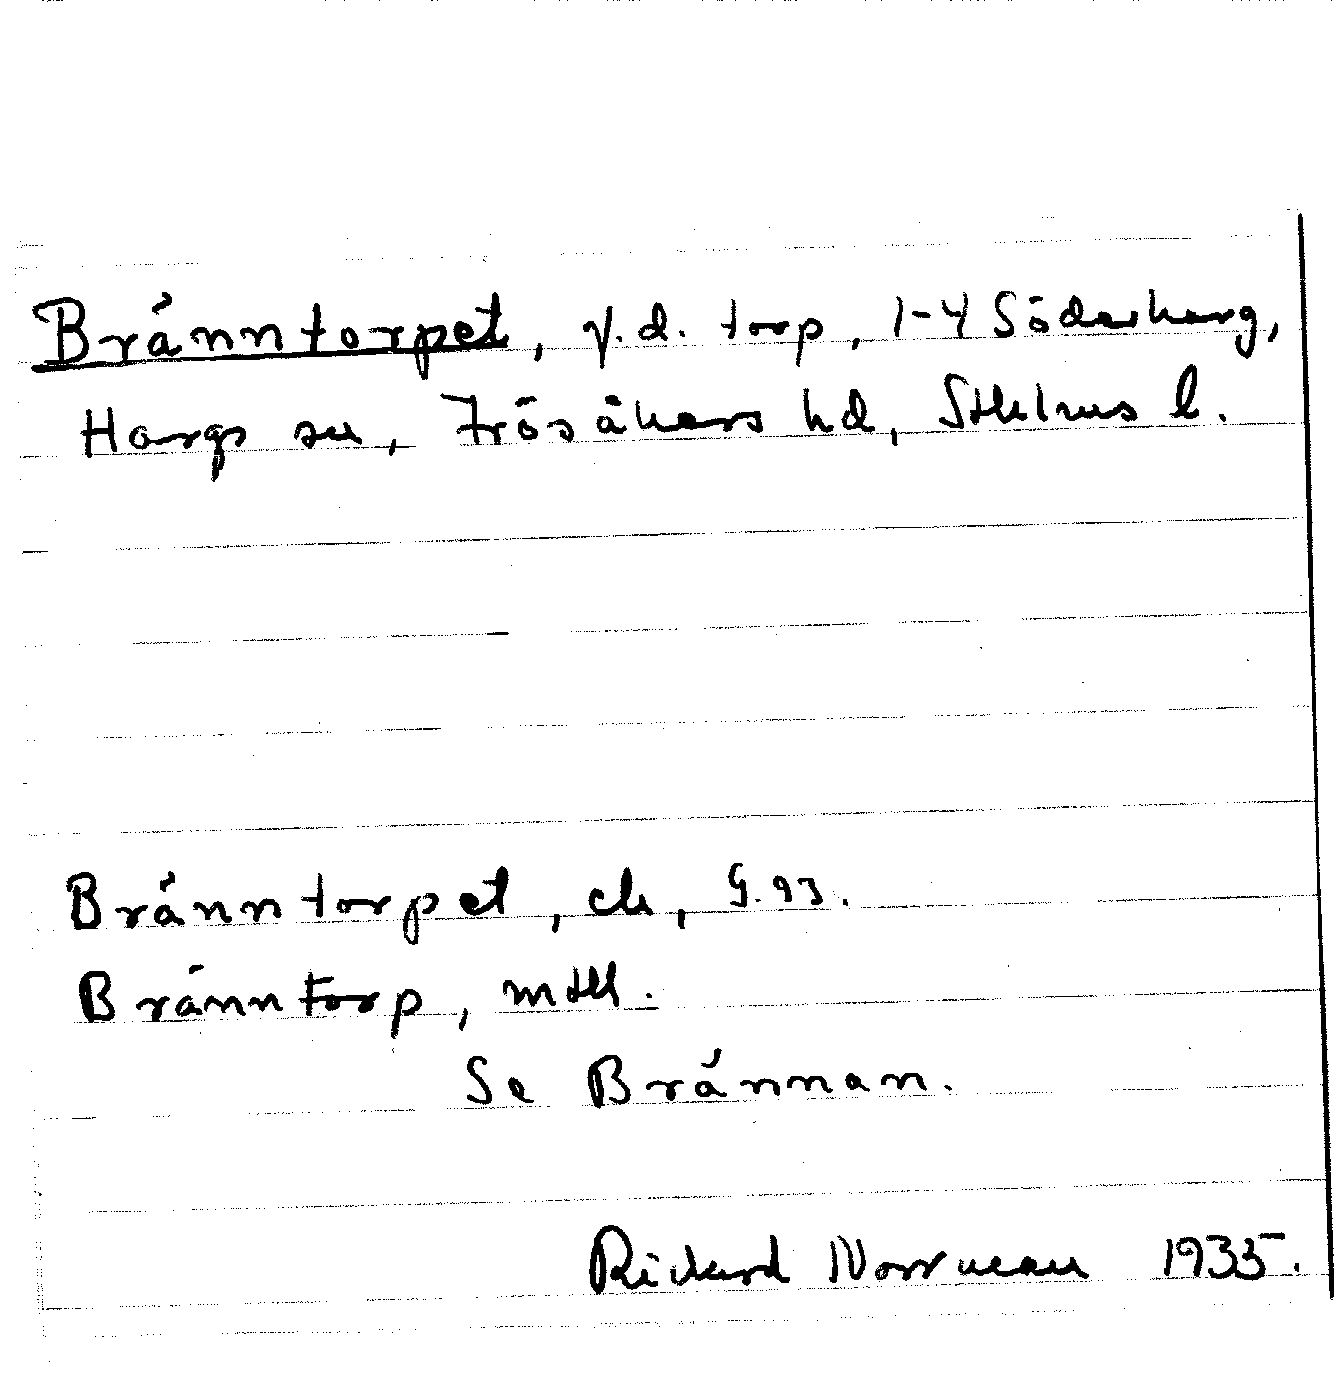 Bränntorpet, f.d. torp, 1-4 Söderharg,
Hargs sn, Frösåkers hd, Sthlms l.
Bränntorpet, ek, G. 93.
Bränntorp, mtll.
Se Brännan.
Rickard Norrman 1935.